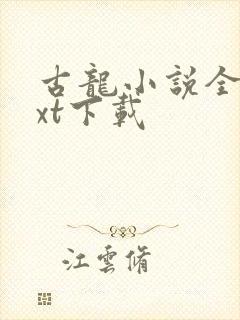 古龍小説全
xt下載
江雲脩